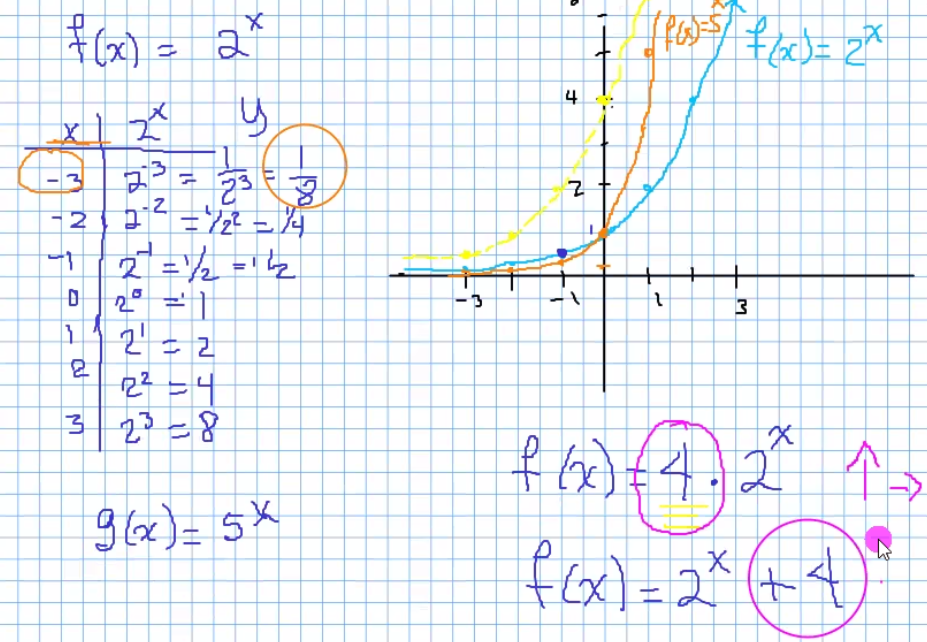 f(x) = 2^x
x | 2^x y
-3 | 2^-3 = 1/2^3 = 1/8
-2 | 2^-2 = 1/2^2 = 1/4
-1 | 2^-1 = 1/2 = 1/2
0 | 2^0 = 1
1 | 2^1 = 2
2 | 2^2 = 4
3 | 2^3 = 8
g(x) = 5^x
f(x)=5^x
f(x) = 2^x
4
2
1
-3 -1 1 3
f(x) = 4 · 2^x
f(x) = 2^x + 4